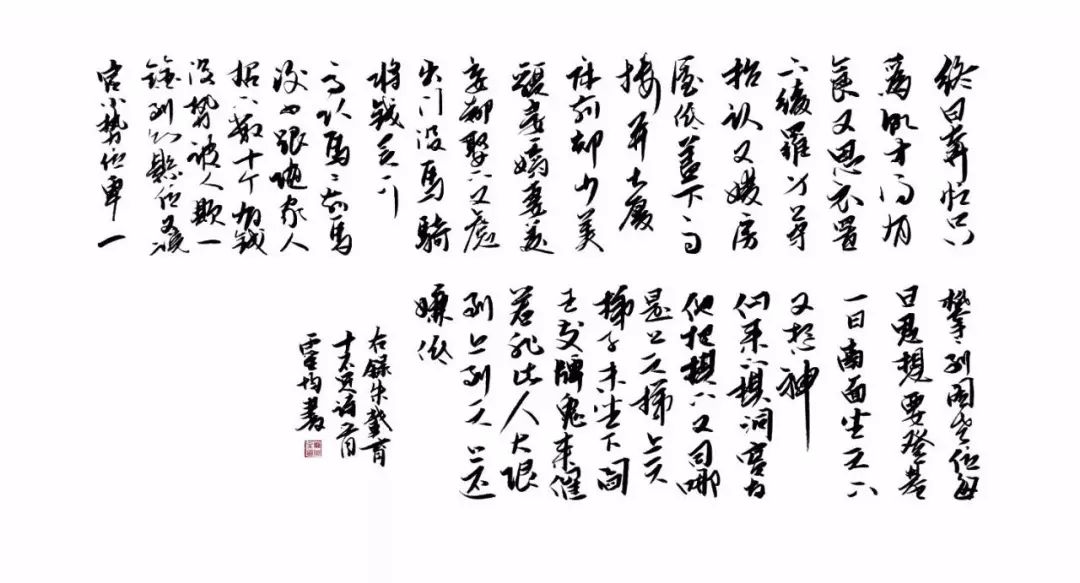 終日奔忙只
為飢才得有
食又思衣置
下綾羅
抬頭又嫌房
屋低蓋下高
樓并大廈
床前却少美
嬌妻美
妾都娶下又慮
出门没馬騎
将錢買下
高頭馬馬前馬
後少跟隨家人
招下數十个有錢
没勢被人欺一
銓到知縣位又說
官小勢位卑一
攀到閣老位每
日思想要登基
一日南面坐天下
又想神
仙来下棋洞賓与
他把棋下又问哪
是上天梯上天
梯子未坐下閻
王發牌鬼来催
若非此人大限
到上到天上还
嫌低
右錄朱載堉
十不足詩一首
均書